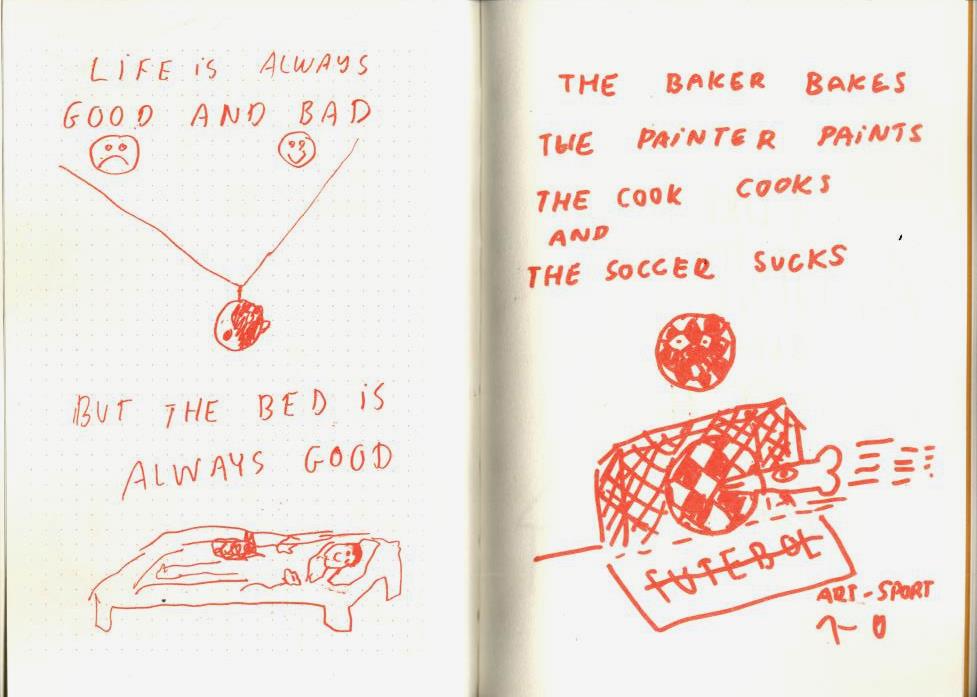 LiFE iS ALWAYS
GOOD AND BAD
BUT THE BED iS
ALWAYS GOOD
THE BAKER BAKES
THE PAiNTER PAiNTS
THE COOK COOKS
AND
THE SOCCER SUCKS
FUTEBOL
ART-SPORT
1-0